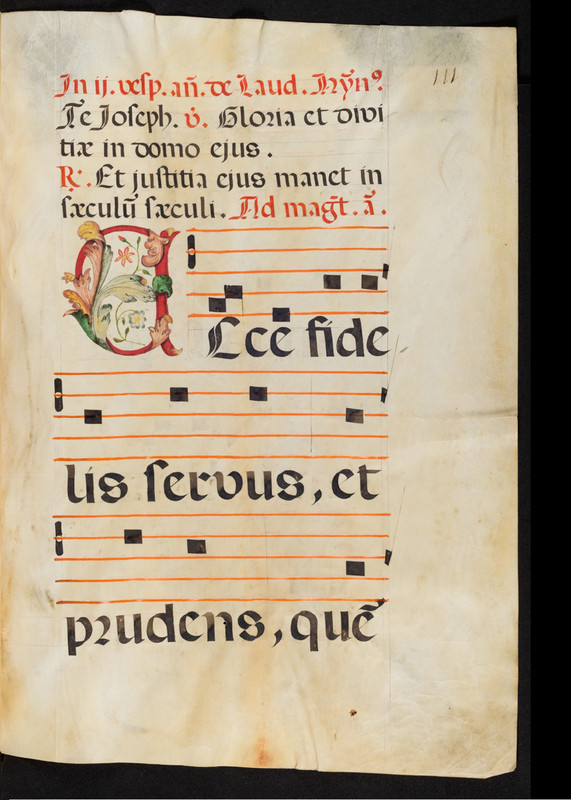 III
In ij. vesp. añ. de Laud. Hỹn⁹.
Te Joseph. v̇. Gloria et divi
tiæ in domo ejus.
R. Et justitia ejus manet in
sæculũ sæculi. Ad mag̃t. ã.
Ecce fide
lis servus, et
prudens, quẽ